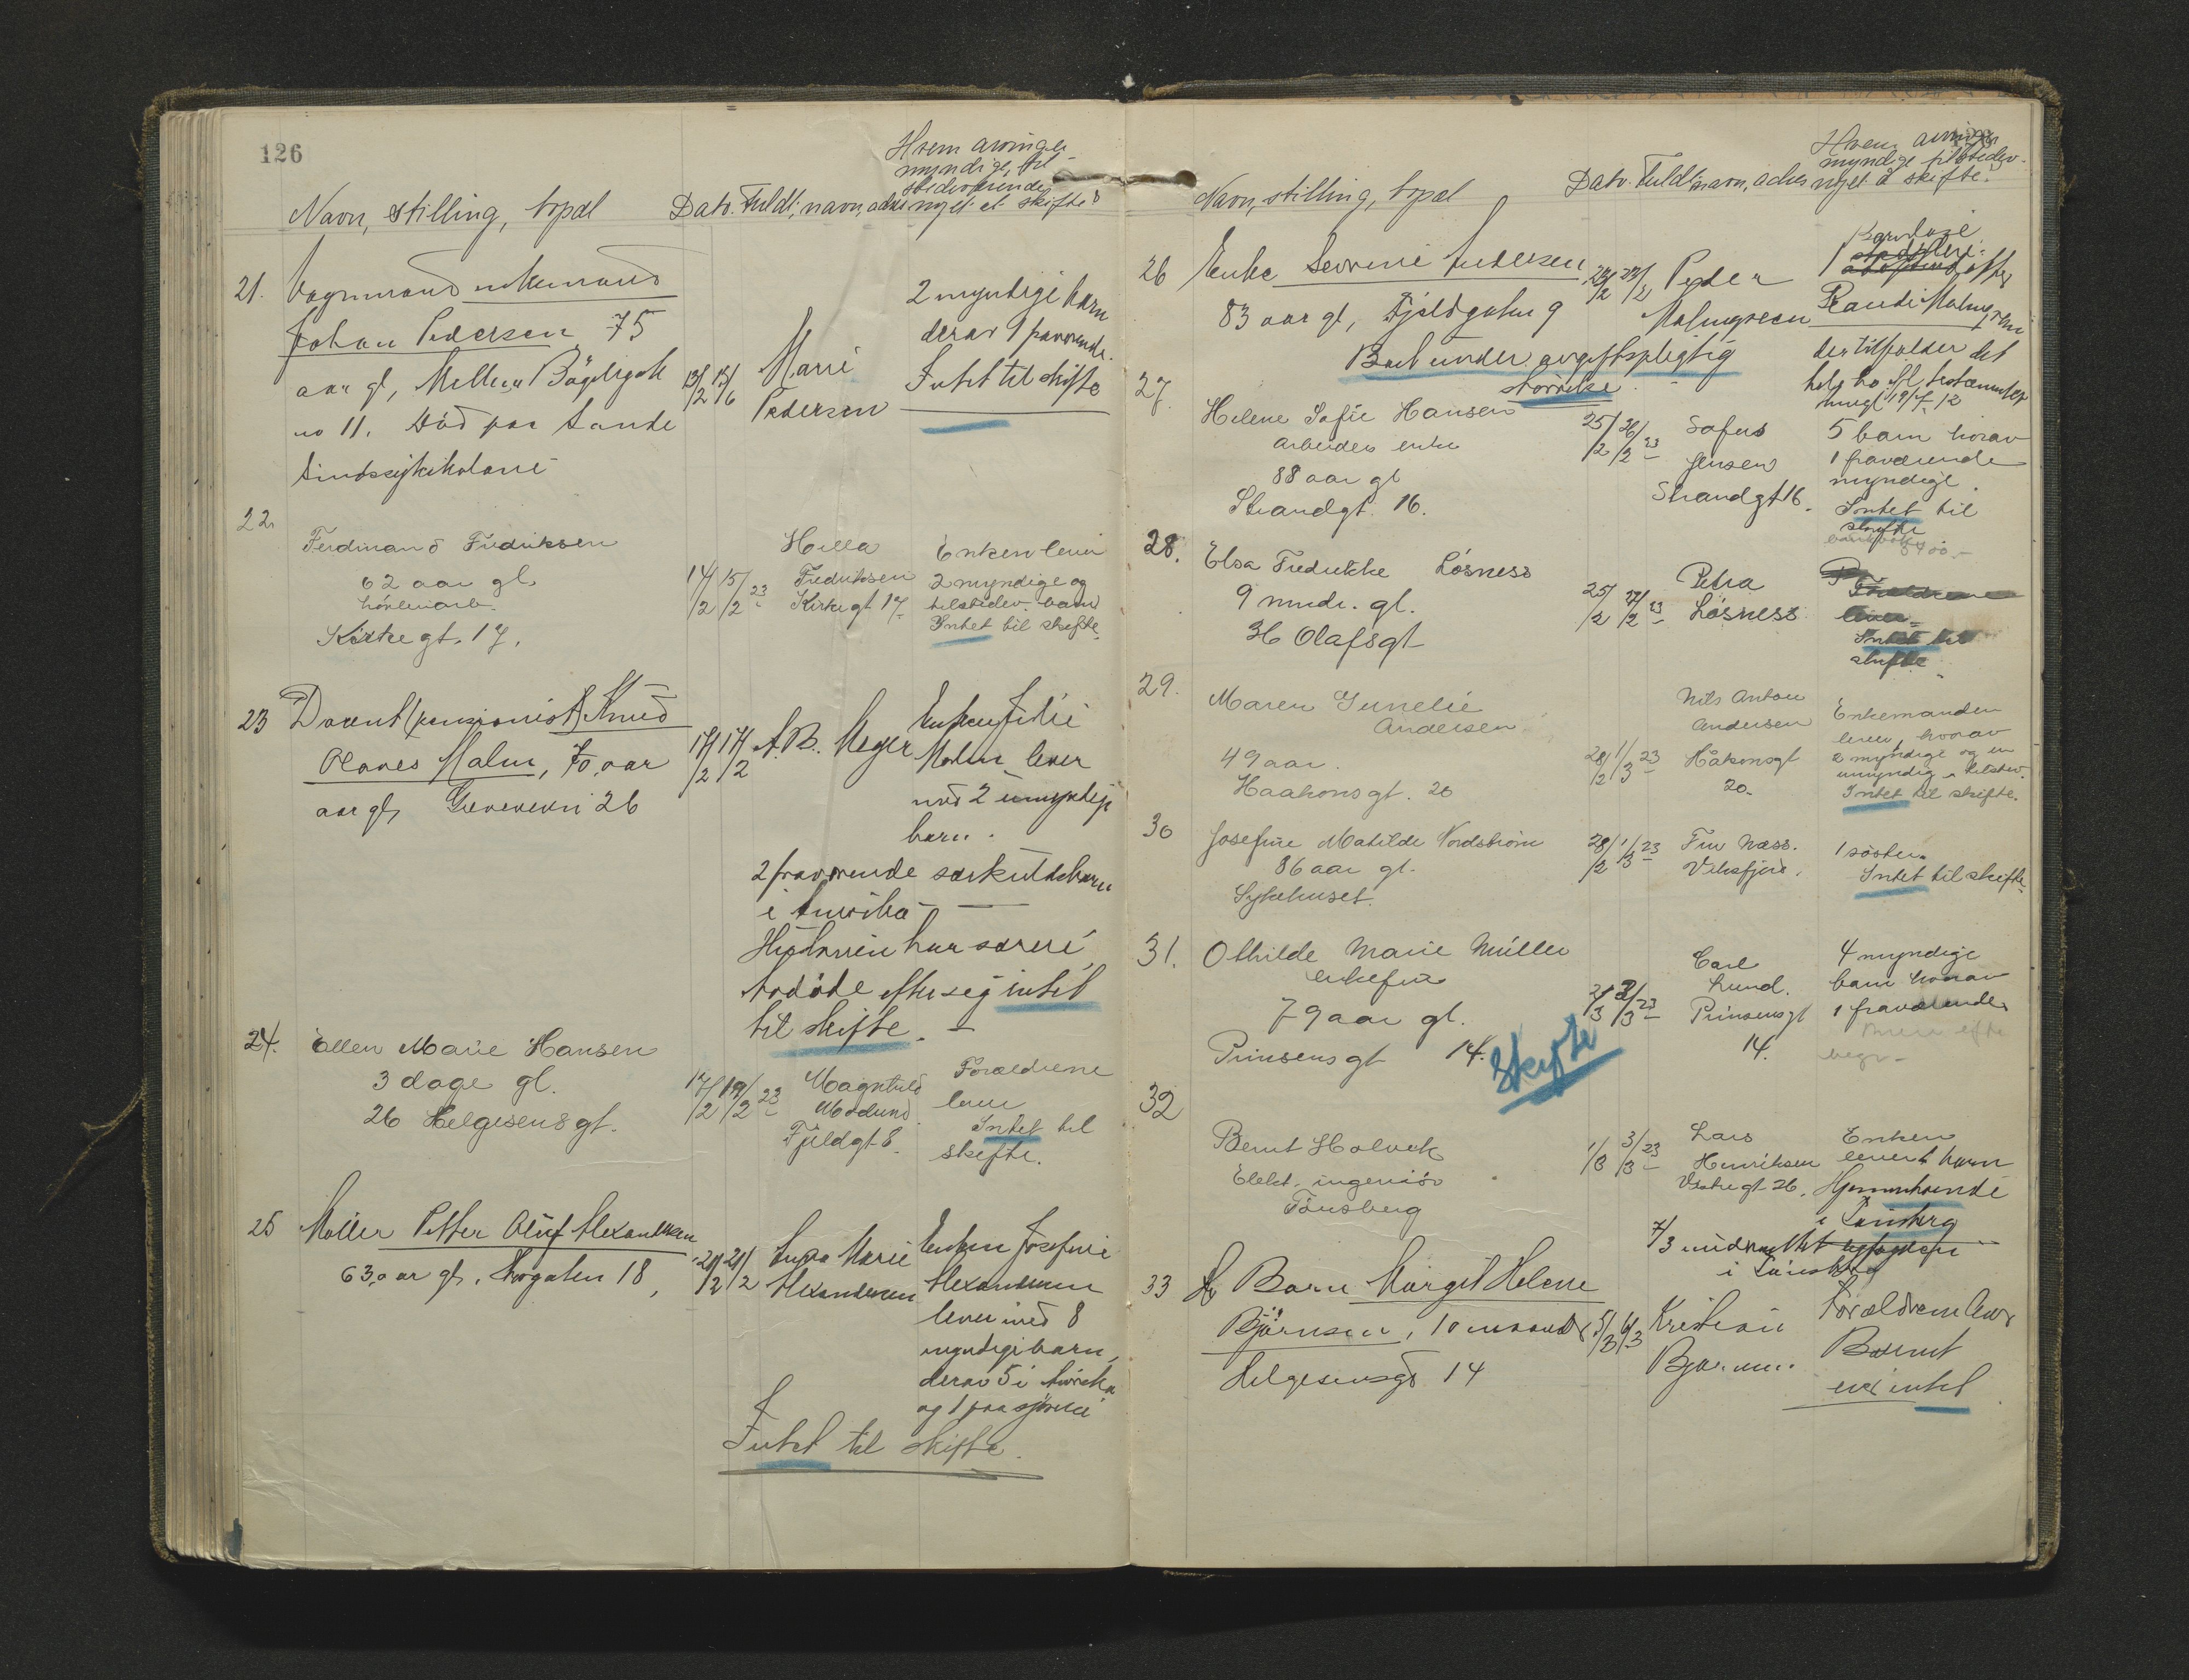 126
Hvem arvinger
myndige, til-
stedeværende
Navn, stilling, bopæl Dato. Fuldt, navn, adr. noget at skifte?
21. Vognmand enkemand
Johan Pedersen 75
aar gl, Mellem Bögelgaten
no 11. Död paa Sande
Sindssykekoloni
13/2 13/6
Marie
Pedersen
2 myndige barn
derav 1 fraværende.
Intet til skifte
22.
Ferdinand Fredriksen
62 aar gl.
Kirkegt. 17.
14/2 15/2 23
Hilla
Fredriksen
Kirkegt 17
Enken lever
2 myndige og
tilstedev. barn
Intet til skifte
23 Docent (pensionist) Knud
Olaves Malm, 70 aar
aar gl, 26
17/2 17/2
A. B. Meyer
Enken Julie
Malm lever
med 2 umyndige
barn.
2 fraværende særkuldsbarn
i Amerika
har særeie,
Avdöde efter sig intet
til skifte.
24. Ellen Marie Hansen
3 dage gl.
26 Helgesens gt.
17/2 19/2 23
Magnhild
Moslund
Fjeldgt 8.
Forældrene
lever
Intet til
skifte.
25 Möller Petter Oluf Alexandersen
63 aar gl. Storgaten 18,
20/2 21/2
Inga Marie
Alexandersen
Enken Josefine
Alexandersen
lever med 8
myndige barn,
derav 5 i Amerika
og 1 paa sjöreise
Intet til skifte.
Hvem arvinger
myndige tilstedev.
Navn, stilling, bopæl Dato. Fuldt navn, adres noget å skifte?
26 Enke Severine Andersen
83 aar gl, Fjeldgaten 9
23/2 23/2
Peder
Malmgreen
1
Randi Malmgreen
der tilfalder det
hele bo ifl. testamente
17/7-12
Boet under avgiftspligtig
störrelse
27.
Helene Sofie Hansen
Arbeider enke
88 aar gl
Strandgt. 16.
25/2 26/2 23
Sofus
Jensen
Strandgt 16.
5 barn hvorav
1 fraværende
myndige.
Intet til
skifte
28. Elsa Fredrikke Lösness
9 mndr. gl.
36 Olafsgt
25/2 27/2 23
Petra
Lösness
Forældrene
lever
Intet til
skifte
29.
Maren Gunelie
Andersen
49 aar.
Haakonsgt. 20
28/2 1/3 23
Nils Anton
Andersen
Håkonsgt
20.
Enkemanden
lever, hvorav
2 myndige og en
umyndig, tilstev.
Intet til skifte.
30 Josefine Matilde Nordström
86 aar gl.
Sykehuset.
28/2 1/3 23
Fru Næss.
Viksfjord.
1 söster.
Intet til skifte.
31. Othilde Marie Müller
enkefru
79 aar gl.
Prinsensgt 14.
2/3 3/3 23
Carl
Lund.
Prinsensgt
14.
4 myndige
barn hvorav
1 fraværende
Skifte
32
Bernt Holvik
Elekt. ingeniör
Tönsberg
1/3 3/3 23
Lars
Henriksen
Vestregt 26.
Enken
lever 1 barn
Hjemmehörende
i Tönsberg
7/3
i Tönsberg
33 Barn Margit Helene
Björnsen, 10 maaneder
Helgesensgt 14
5/3 6/3
Kristian
Björnsen.
Forældrene lever
Barnet
eier intet